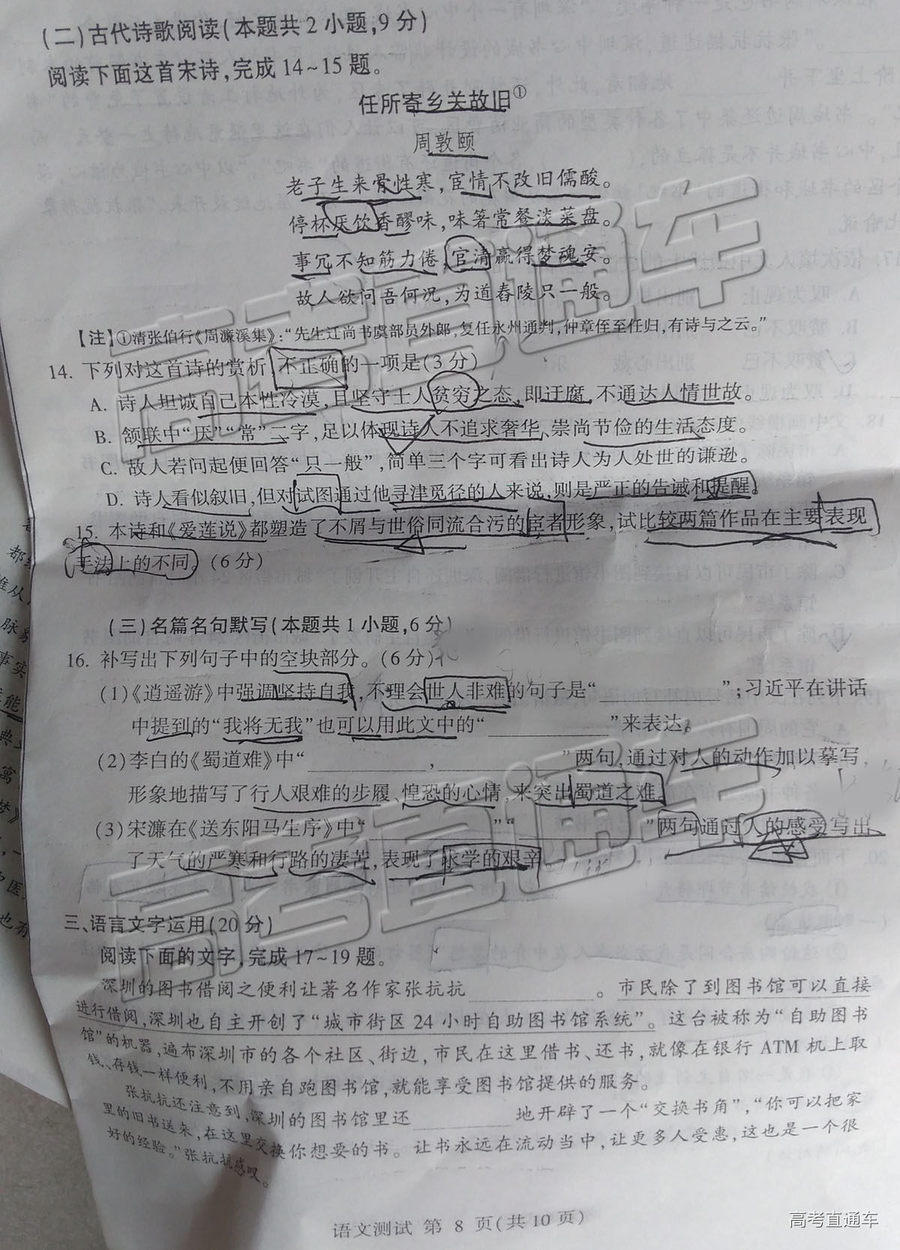 (二)古代诗歌阅读(本题共2小题,9分)
阅读下面这首宋诗,完成14~15题。
任所寄乡关故旧①
周敦颐
老子生来骨性寒,宦情不改旧儒酸。
停杯厌饮香醪味,味箸常餐淡菜盘。
事冗不知筋力倦,官清赢得梦魂安。
故人欲问吾何况,为道舂陵只一般。
【注】①清张伯行《周濂溪集》:“先生迁尚书虞部员外郎,复任永州通判,仲章侄至任归,有诗与之云。”
14. 下列对这首诗的赏析,不正确的一项是(3分)
A. 诗人坦诚自己本性冷漠,且坚守士人贫穷之态,即迂腐,不通达人情世故。
B. 颔联中“厌”“常”二字,足以体现诗人不追求奢华、崇尚节俭的生活态度。
C. 故人若问起便回答“只一般”,简单三个字可看出诗人为人处世的谦逊。
D. 诗人看似叙旧,但对试图通过他寻津觅径的人来说,则是严正的告诫和提醒。
15. 本诗和《爱莲说》都塑造了不屑与世俗同流合污的官者形象,试比较两篇作品在主要表现
手法上的不同。(6分)
(三)名篇名句默写(本题共1小题,6分)
16. 补写出下列句子中的空块部分。(6分)
(1)《逍遥游》中强调坚持自我,不理会世人非难的句子是“________”;习近平在讲话
中提到的“我将无我”也可以用此文中的“________”来表达。
(2)李白的《蜀道难》中“________,________”两句,通过对人的动作加以摹写,
形象地描写了行人艰难的步履、惶恐的心情,来突出蜀道之难。
(3)宋濂在《送东阳马生序》中“________”“________”两句通过人的感受写出
了天气的严寒和行路的凄苦,表现了求学的艰辛。
三、语言文字运用(20分)
阅读下面的文字,完成17~19题。
深圳的图书借阅之便利让著名作家张抗抗________。市民除了到图书馆可以直接
进行借阅,深圳也自主开创了“城市街区24小时自助图书馆系统”。这台被称为“自助图书
馆”的机器,遍布深圳市的各个社区、街边,市民在这里借书、还书,就像在银行ATM机上取
钱、存钱一样便利,不用亲自跑图书馆,就能享受图书馆提供的服务。
张抗抗还注意到,深圳的图书馆里还________地开辟了一个“交换书角”,“你可以把家
里的旧书送来,在这里交换你想要的书。让书永远在流动当中,让更多人受惠,这也是一个很
好的经验。”张抗抗感叹。
语文测试 第8页(共10页)
高考直通车
高考直通车
高考直通车